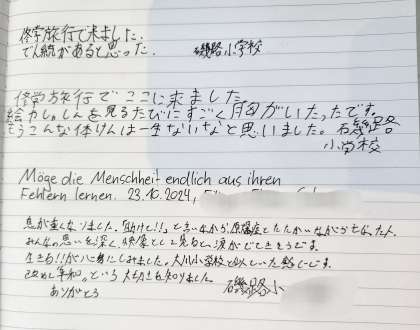 修学旅行で来ました.
でん統があると思った. 磯路小学校
修学旅行でここに来ました.
絵やしゃしんを見るたびにすごく胸がいたったです。
もうこんな体けんは一生ないなと思いました。石磯路
小学校
Möge die Menschheit endlich aus ihren
Fehlern lernen. 23.10.2024,
息が重くなりました。「助けて!!」と言いながら原爆症とたたかいながら亡くなった人、
みんなの思いを深く
生きる!!が心に身にしみました。大川小学校と似ていた感じです。
改めて平和。という大切さを知りました。
ありがとう 磯路小